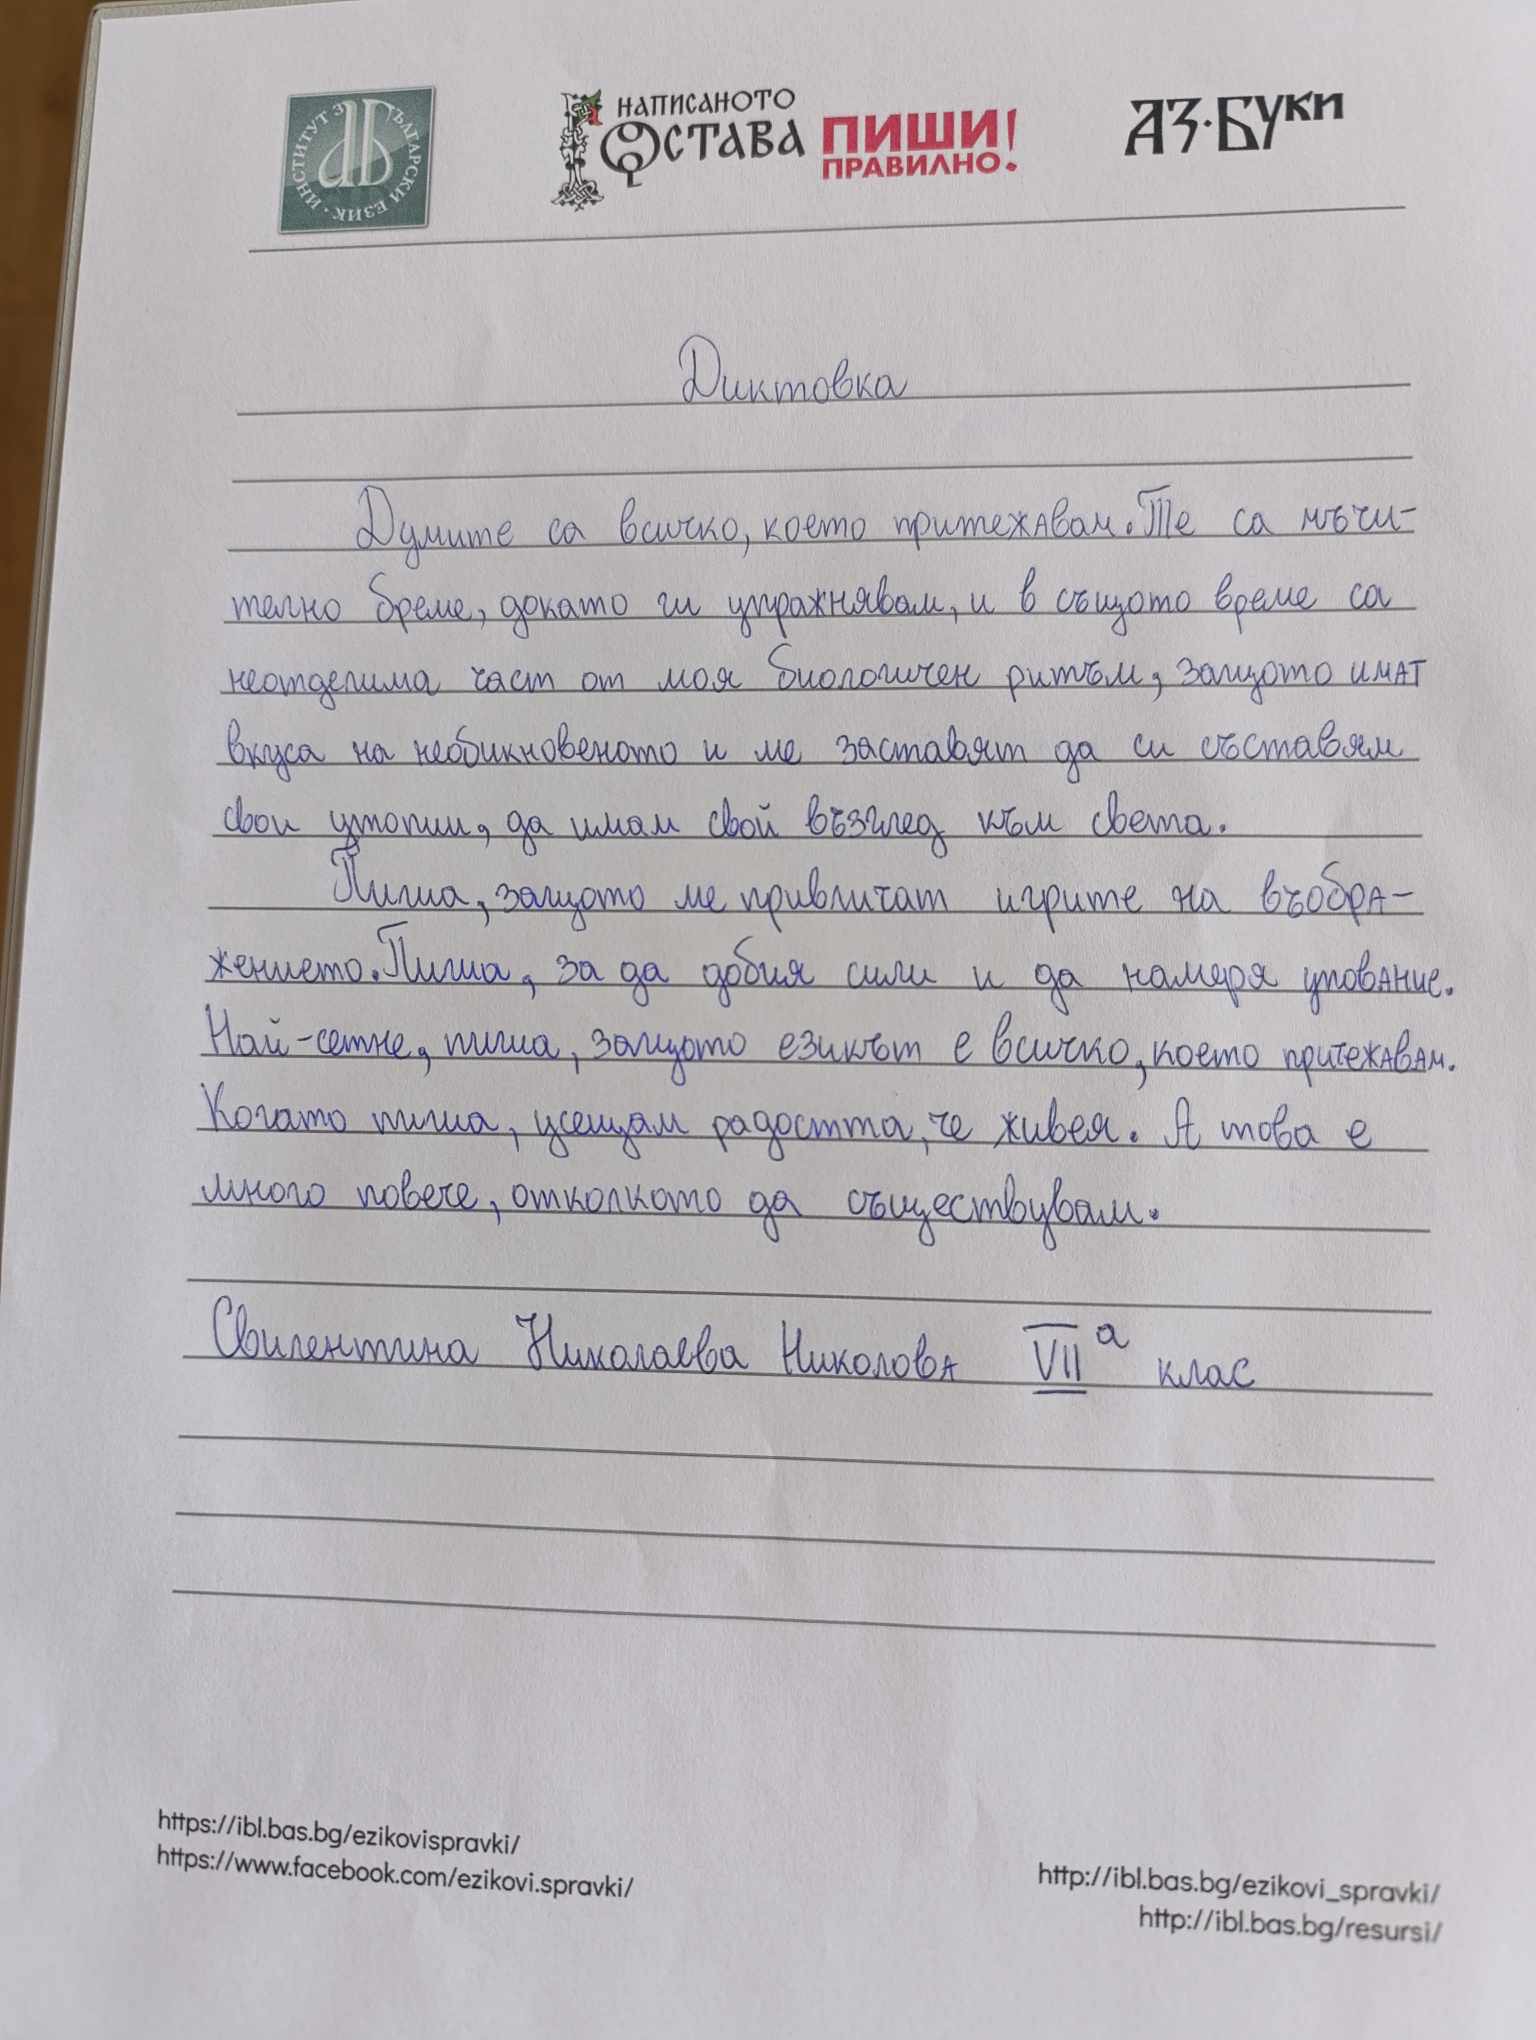 ИНСТИТУТ ЗА БЪЛГАРСКИ ЕЗИК
НАПИСАНОТО
ОСТАВА
ПИШИ!
ПРАВИЛНО.
АЗ·БУКИ
Диктовка
Думите са всичко, което притежавам. Те са мъчи-
телно бреме, докато ги упражнявам, и в същото време са
неотделима част от моя биологичен ритъм, защото имат
вкуса на необикновеното и ме заставят да си съставям
свои утопии, да имам свой възглед към света.
Пиша, защото ме привличат игрите на въобра-
жението. Пиша, за да добия сили и да намеря упование.
Най-сетне, пиша, защото езикът е всичко, което притежавам.
Когато пиша, усещам радостта, че живея. А това е
много повече, отколкото да съществувам.
Свилентина Николаева Николова VII а клас
https://ibl.bas.bg/ezikovispravki/
https://www.facebook.com/ezikovi.spravki/
http://ibl.bas.bg/ezikovi_spravki/
http://ibl.bas.bg/resursi/